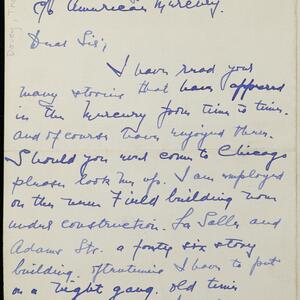 c/o American Mercury.
Dear Sir;
I have read your
many stories that have appeared
in the Mercury from time to time.
and of course have enjoyed them.
Should you ever come to Chicago
please look me up. I am employed
on the new Field building now
under construction. La Salle and
Adams Sts. a forty six story
building. oftentimes I have to put
on a night gang. old time